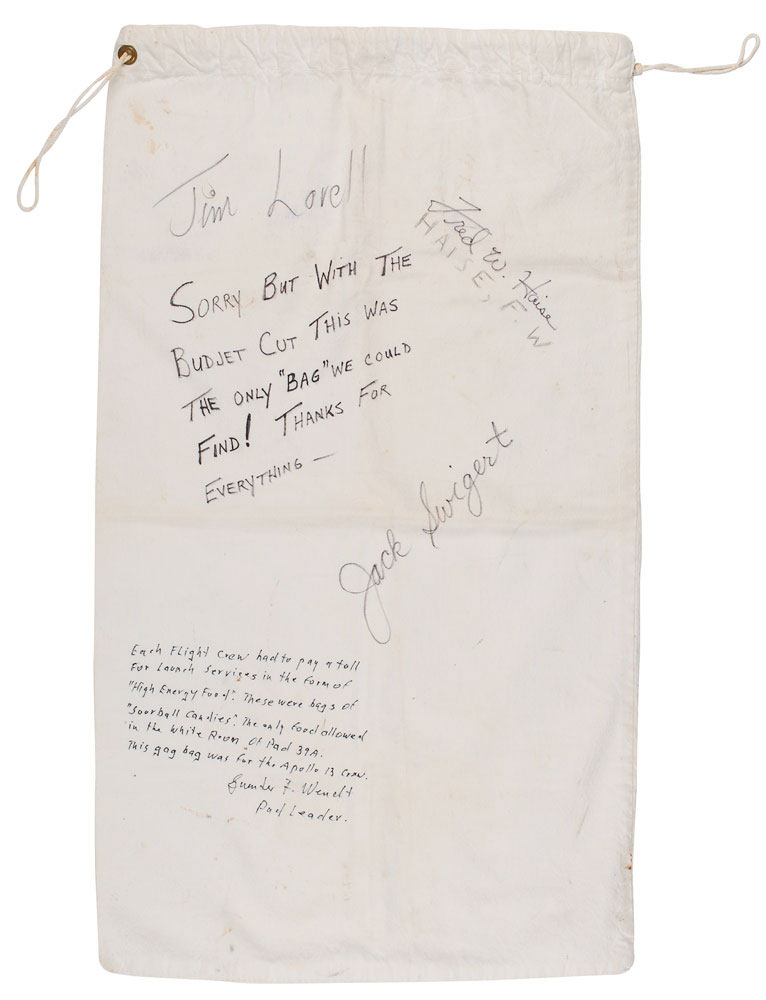 Jim Lovell
Fred W. Haise
HAISE, F. W
SORRY BUT WITH THE
BUDJET CUT THIS WAS
THE ONLY "BAG" WE COULD
FIND! THANKS FOR
EVERYTHING —
Jack Swigert
Each Flight Crew had to pay a toll
For Launch Services in the form of
"High Energy Food". These were bags of
"Sourball Candies". The only food allowed
in the White Room of Pad 39A.
This gag bag was for the Apollo 13 Crew.
Guenter F. Wendt
Pad Leader.